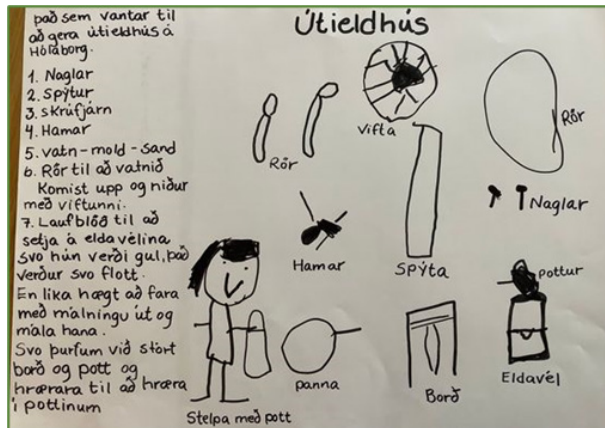 það sem vantar til
að gera útieldhús á
Hólaborg.
1. Naglar
2. Spýtur
3. skrúfjárn
4. Hamar
5. vatn-mold-sand
6. Rör til að vatnið
Komist upp og niður
með viftunni.
7. Laufblöð til að
setja á eldavélina
svo hún verði gul, það
verður svo flott.
En lika hægt að fara
með málningu út og
mála hana.
Svo þurfum við stórt
borð og pott og
hrærara til að hræra
í pottinum
Útieldhús
Vifta
Rör
Rör
Naglar
Hamar
Spýta
pottur
panna
Borð
Eldavél
Stelpa með pott